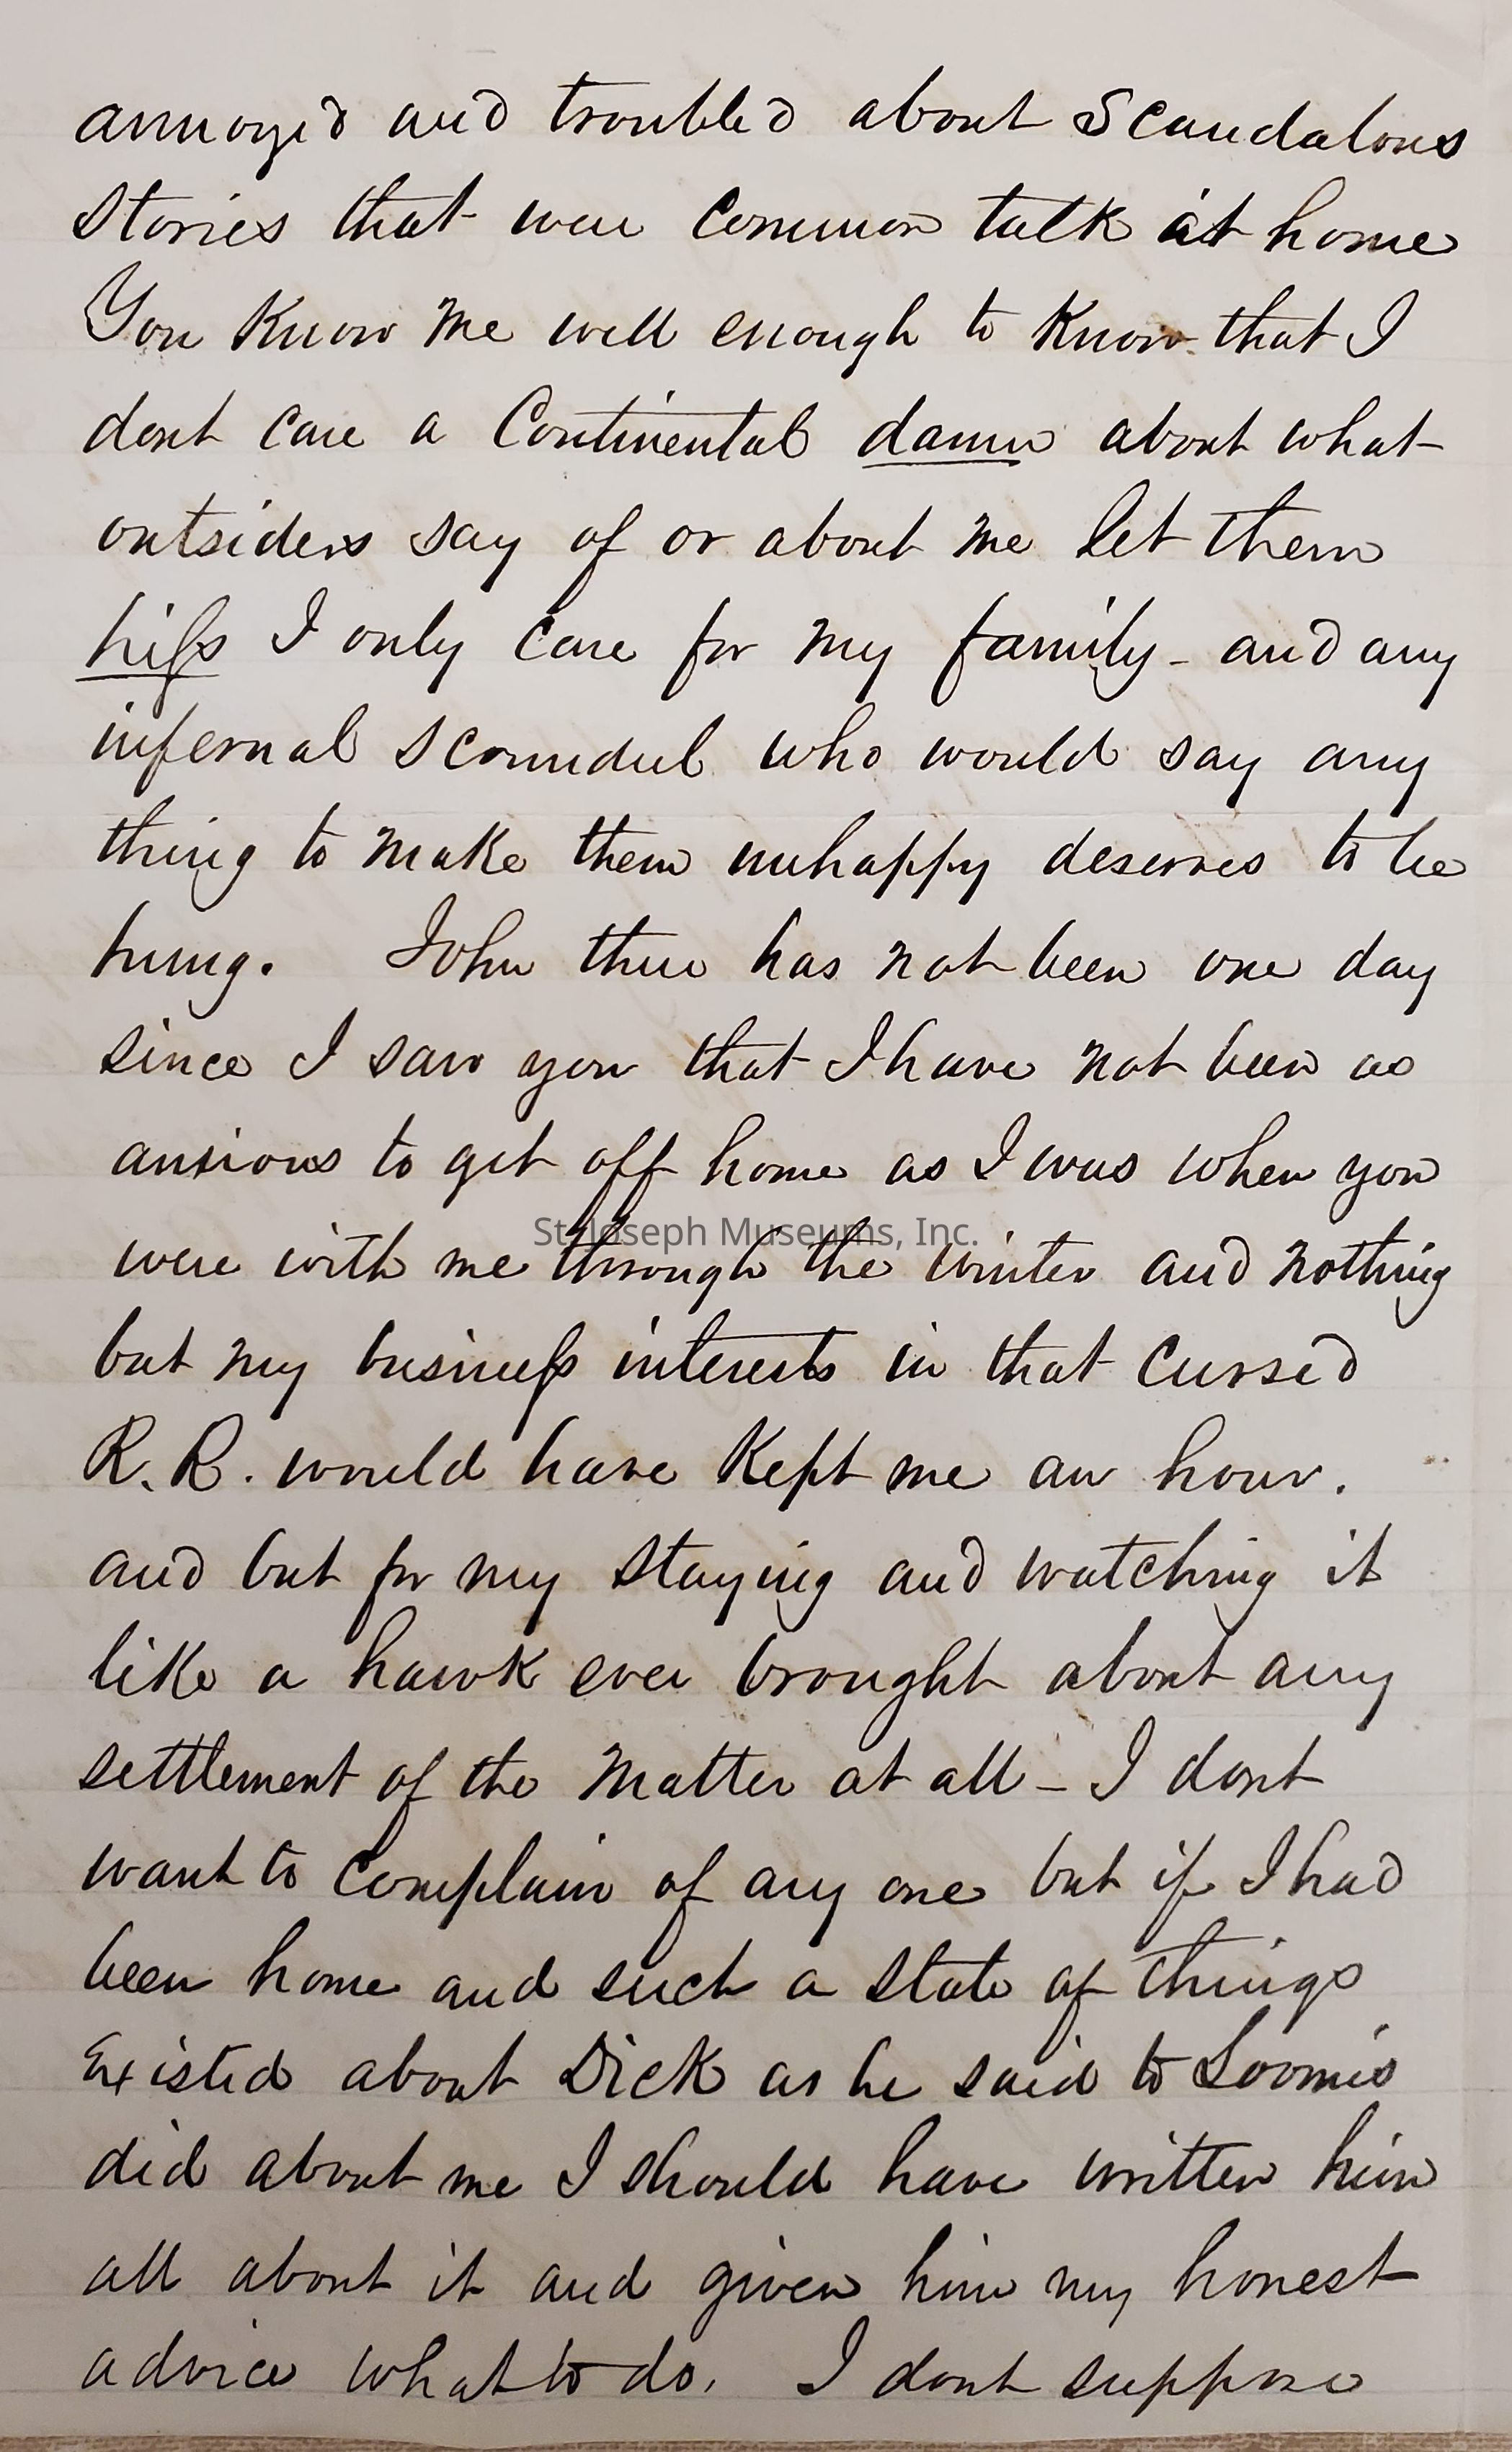 annoyed and troubled about Scandalous
Stories that were Common talk at home
You Know me well enough to Know that I
dont Care a Continental damn about what
outsiders say of or about me let them
hiss I only Care for my family - and any
infernal Scoundrel who would say any
thing to make them unhappy deserves to be
hung. John there has not been one day
since I saw you that I have not been as
anxious to get off home as I was when you
were with me through the winter and nothing
St. Joseph Museums, Inc.
but my business interests in that Cursed
R. R. would have Kept me an hour.
and but for my Staying and watching it
like a hawk ever brought about any
settlement of the Matter at all - I dont
want to Complain of any one but if I had
been home and such a State of things
Existed about Dick as he said to Loomis
did about me I should have written him
all about it and given him my honest
advice what to do. I dont suppose